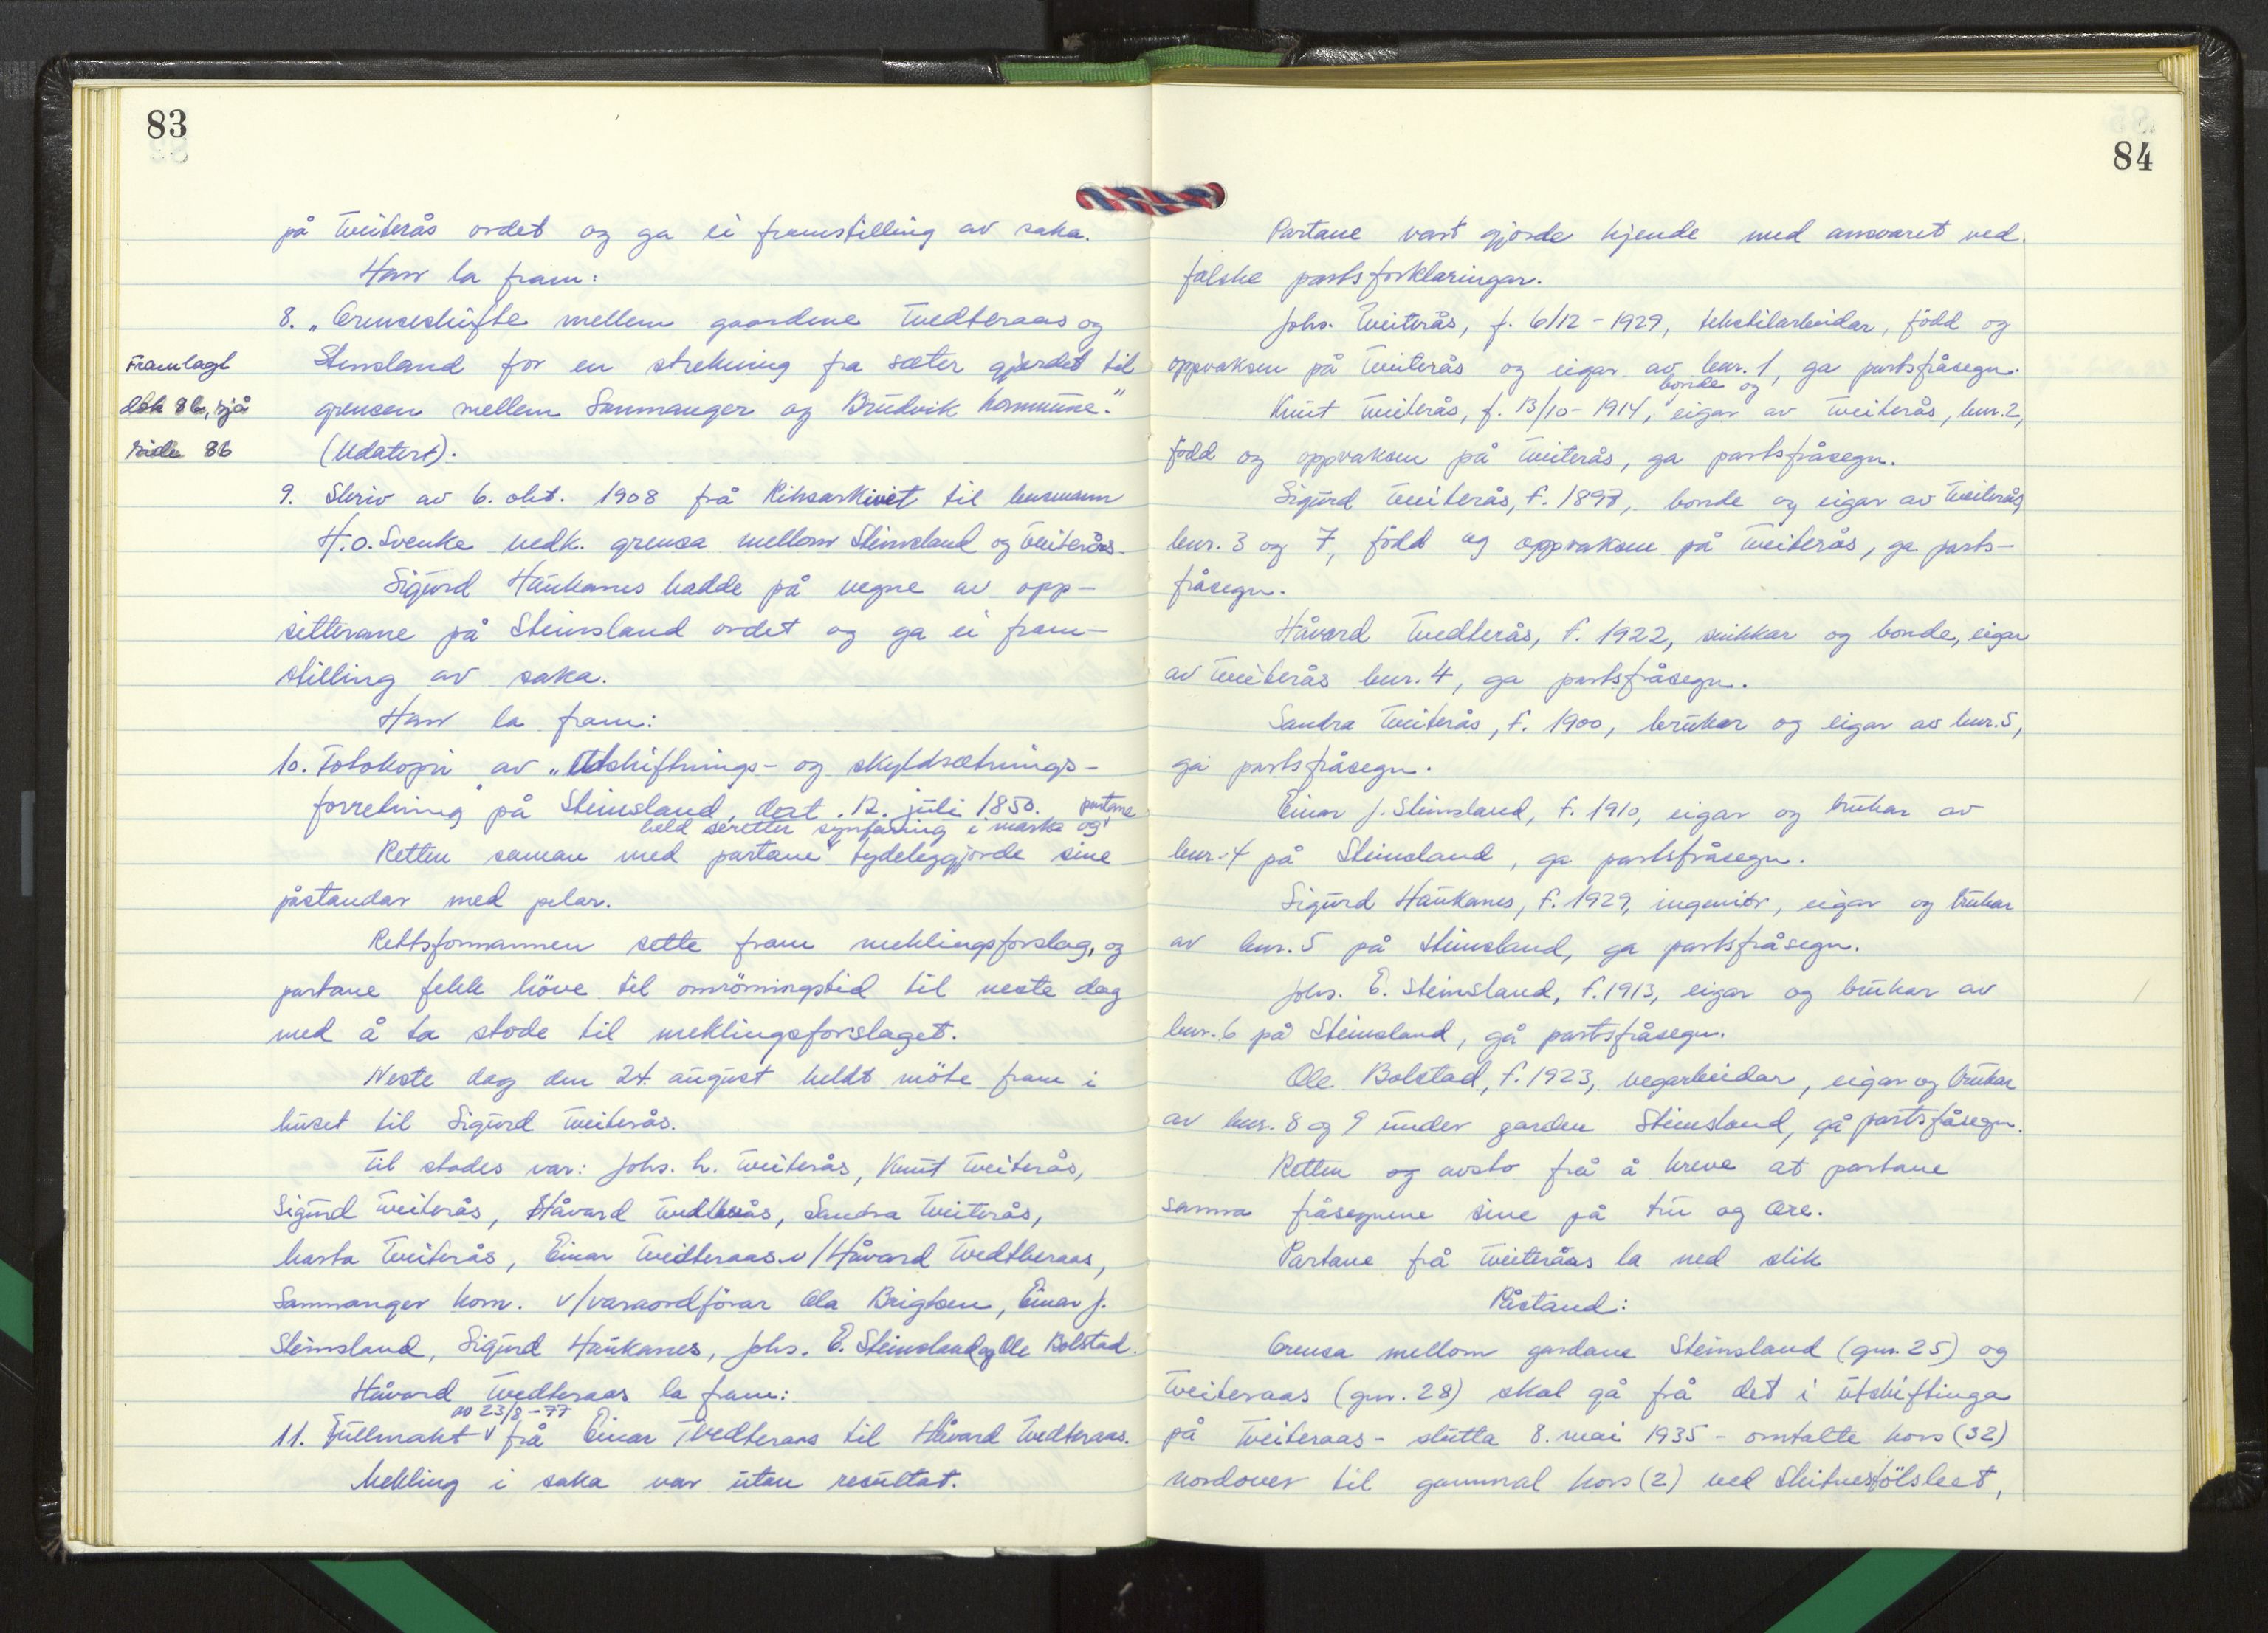 83
på Tveiterås ordet og ga ei framstilling av saka.
Han la fram:
8. „Grenseskifte mellem gaardene Tvedteraas og
Stensland for en strekning fra sæter gjerdet til
grensen mellem Sammanger og Brudvik kommune.”
(Udatert).
Framlagt
dok 8b, sjå
side 86
9. Skriv av 6. okt. 1908 frå Riksarkivet til lensmann
H. O. Svenke vedk. grensa mellom Steinsland og Tveiterås.
Sigurd Haukanes hadde på vegne av opp-
sitterane på Steinsland ordet og ga ei fram-
stilling av saka.
Han la fram:
10. Fotokopi av „Utskiftnings- og skyldsætnings-
forretning” på Steinsland, dat. 12. juli 1850.
held deretter synfaring i marka og partane
Retten saman med partane tydeleggjorde sine
påstandar med pelar.
Rettsformannen sette fram meklingsforslag, og
partane fekk höve til omrömingstid til neste dag
med å ta stode til meklingsforslaget.
Neste dag den 24. august heldt möte fram i
huset til Sigurd Tveiterås.
Til stades var: Johs. h. Tveiterås, Knut Tveiterås,
Sigurd Tveiterås, Håvard Tvedterås, Sandra Tveiterås,
Marta Tveiterås, Einar Tvedteraas v/Håvard Tvedteraas,
Samnanger kom. v/varaordförar Ola Brigtsen, Einar J.
Steinsland, Sigurd Haukanes, Johs. E. Steinsland og Ole Bolstad.
Håvard Tvedteraas la fram:
av 23/8-77
11. Fullmakt v frå Einar Tvedteraas til Håvard Tvedteraas.
Mekling i saka var utan resultat.
84
Partane vart gjorde kjende med ansvaret ved
falske partsforklaringar.
Johs. Tveiterås, f. 6/12-1929, tekstilarbeidar, född og
oppvaksen på Tveiterås og eigar av bnr. 1, ga partsfråsegn.
bonde og
Knut Tveiterås, f. 13/10-1914, eigar av Tveiterås, bnr. 2,
född og oppvaksen på Tveiterås, ga partsfråsegn.
Sigurd Tveiterås, f. 1897, bonde og eigar av Tveiterås,
bnr. 3 og 7, född og oppvaksen på Tveiterås, ga parts-
fråsegn.
Håvard Tvedterås, f. 1922, snikkar og bonde, eigar
av Tveiterås bnr. 4, ga partsfråsegn.
Sandra Tveiterås, f. 1900, brukar og eigar av bnr. 5,
ga partsfråsegn.
Einar J. Steinsland, f. 1910, eigar og brukar av
bnr. 4 på Steinsland, ga partsfråsegn.
Sigurd Haukanes, f. 1929, ingeniör, eigar og brukar
av bnr. 5 på Steinsland, ga partsfråsegn.
Johs. E. Steinsland, f. 1913, eigar og brukar av
bnr. 6 på Steinsland, ga partsfråsegn.
Ole Bolstad, f. 1923, vegarbeidar, eigar og brukar
av bnr. 8 og 9 under garden Steinsland, ga partsfråsegn.
Retten og avsto frå å kreve at partane
sanna fråsegnene sine på tru og ære.
Partane frå Tveiterås la ned slik
Påstand:
Grensa mellom gardane Steinsland (gnr. 25) og
Tveiteraas (gnr. 28) skal gå frå det i utskiftinga
på Tveiteraas - slutta 8. mai 1935 - omtalte kors (32)
nordover til gammal kors (2) ved